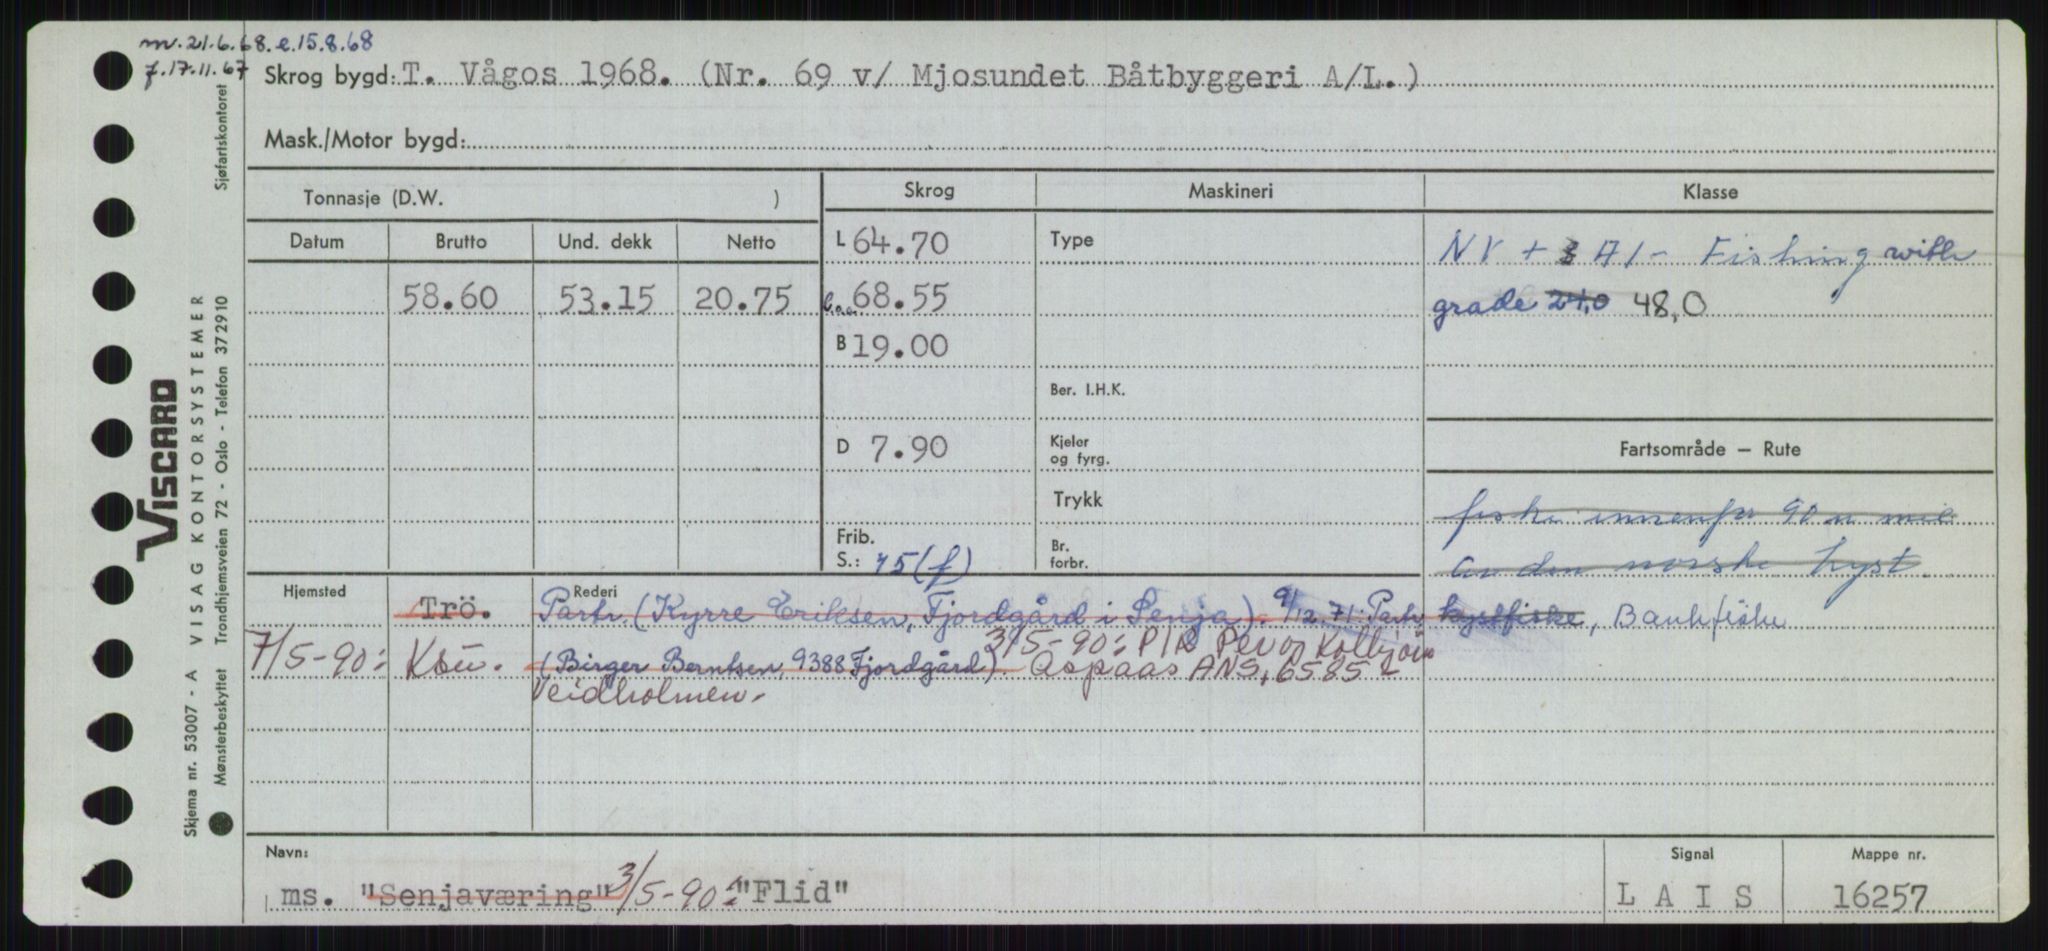 m. 21.6.68. e. 15.8.68
f. 17.11.67
Skrog bygd: T. Vågos 1968. (Nr. 69 v/ Mjosundet Båtbyggeri A/L.)
Mask./Motor bygd:
Tonnasje (D.W. )
Skrog
Maskineri
Klasse
Datum
Brutto
Und. dekk
Netto
L 64.70
Type
NV + A1 - Fishing with
58.60
53.15
20.75
l.o.a. 68.55
grade 24,0 48,0
B 19.00
Ber. I.H.K.
D 7.90
Kjeler
og fyrg.
Fartsområde — Rute
Trykk
fiske innenfor 90 n mil
Frib.
S.: 75 (f)
Br.
forbr.
av den norske kyst.
Hjemsted
Rederi
Trö.
Partr. (Kyrre Eriksen, Fjordgård i Senja). 9/12.71: Partr
kystfiske, Bankfiske
7/5-90: Ksu.
3/5-90: P/R Per og Kolbjörn
(Birger Berntsen, 9388 Fjordgård). Aspaas ANS, 6585
Veidholmen.
Navn:
Signal
Mappe nr.
ms. "Senjaværing" 3/5-90: "Flid"
L A I S
16257
VISCARD
Skjema nr. 53007 - A VISAG KONTORSYSTEMER
Mønsterbeskyttet Trondhjemsveien 72 - Oslo - Telefon 372910 Sjøfartskontoret